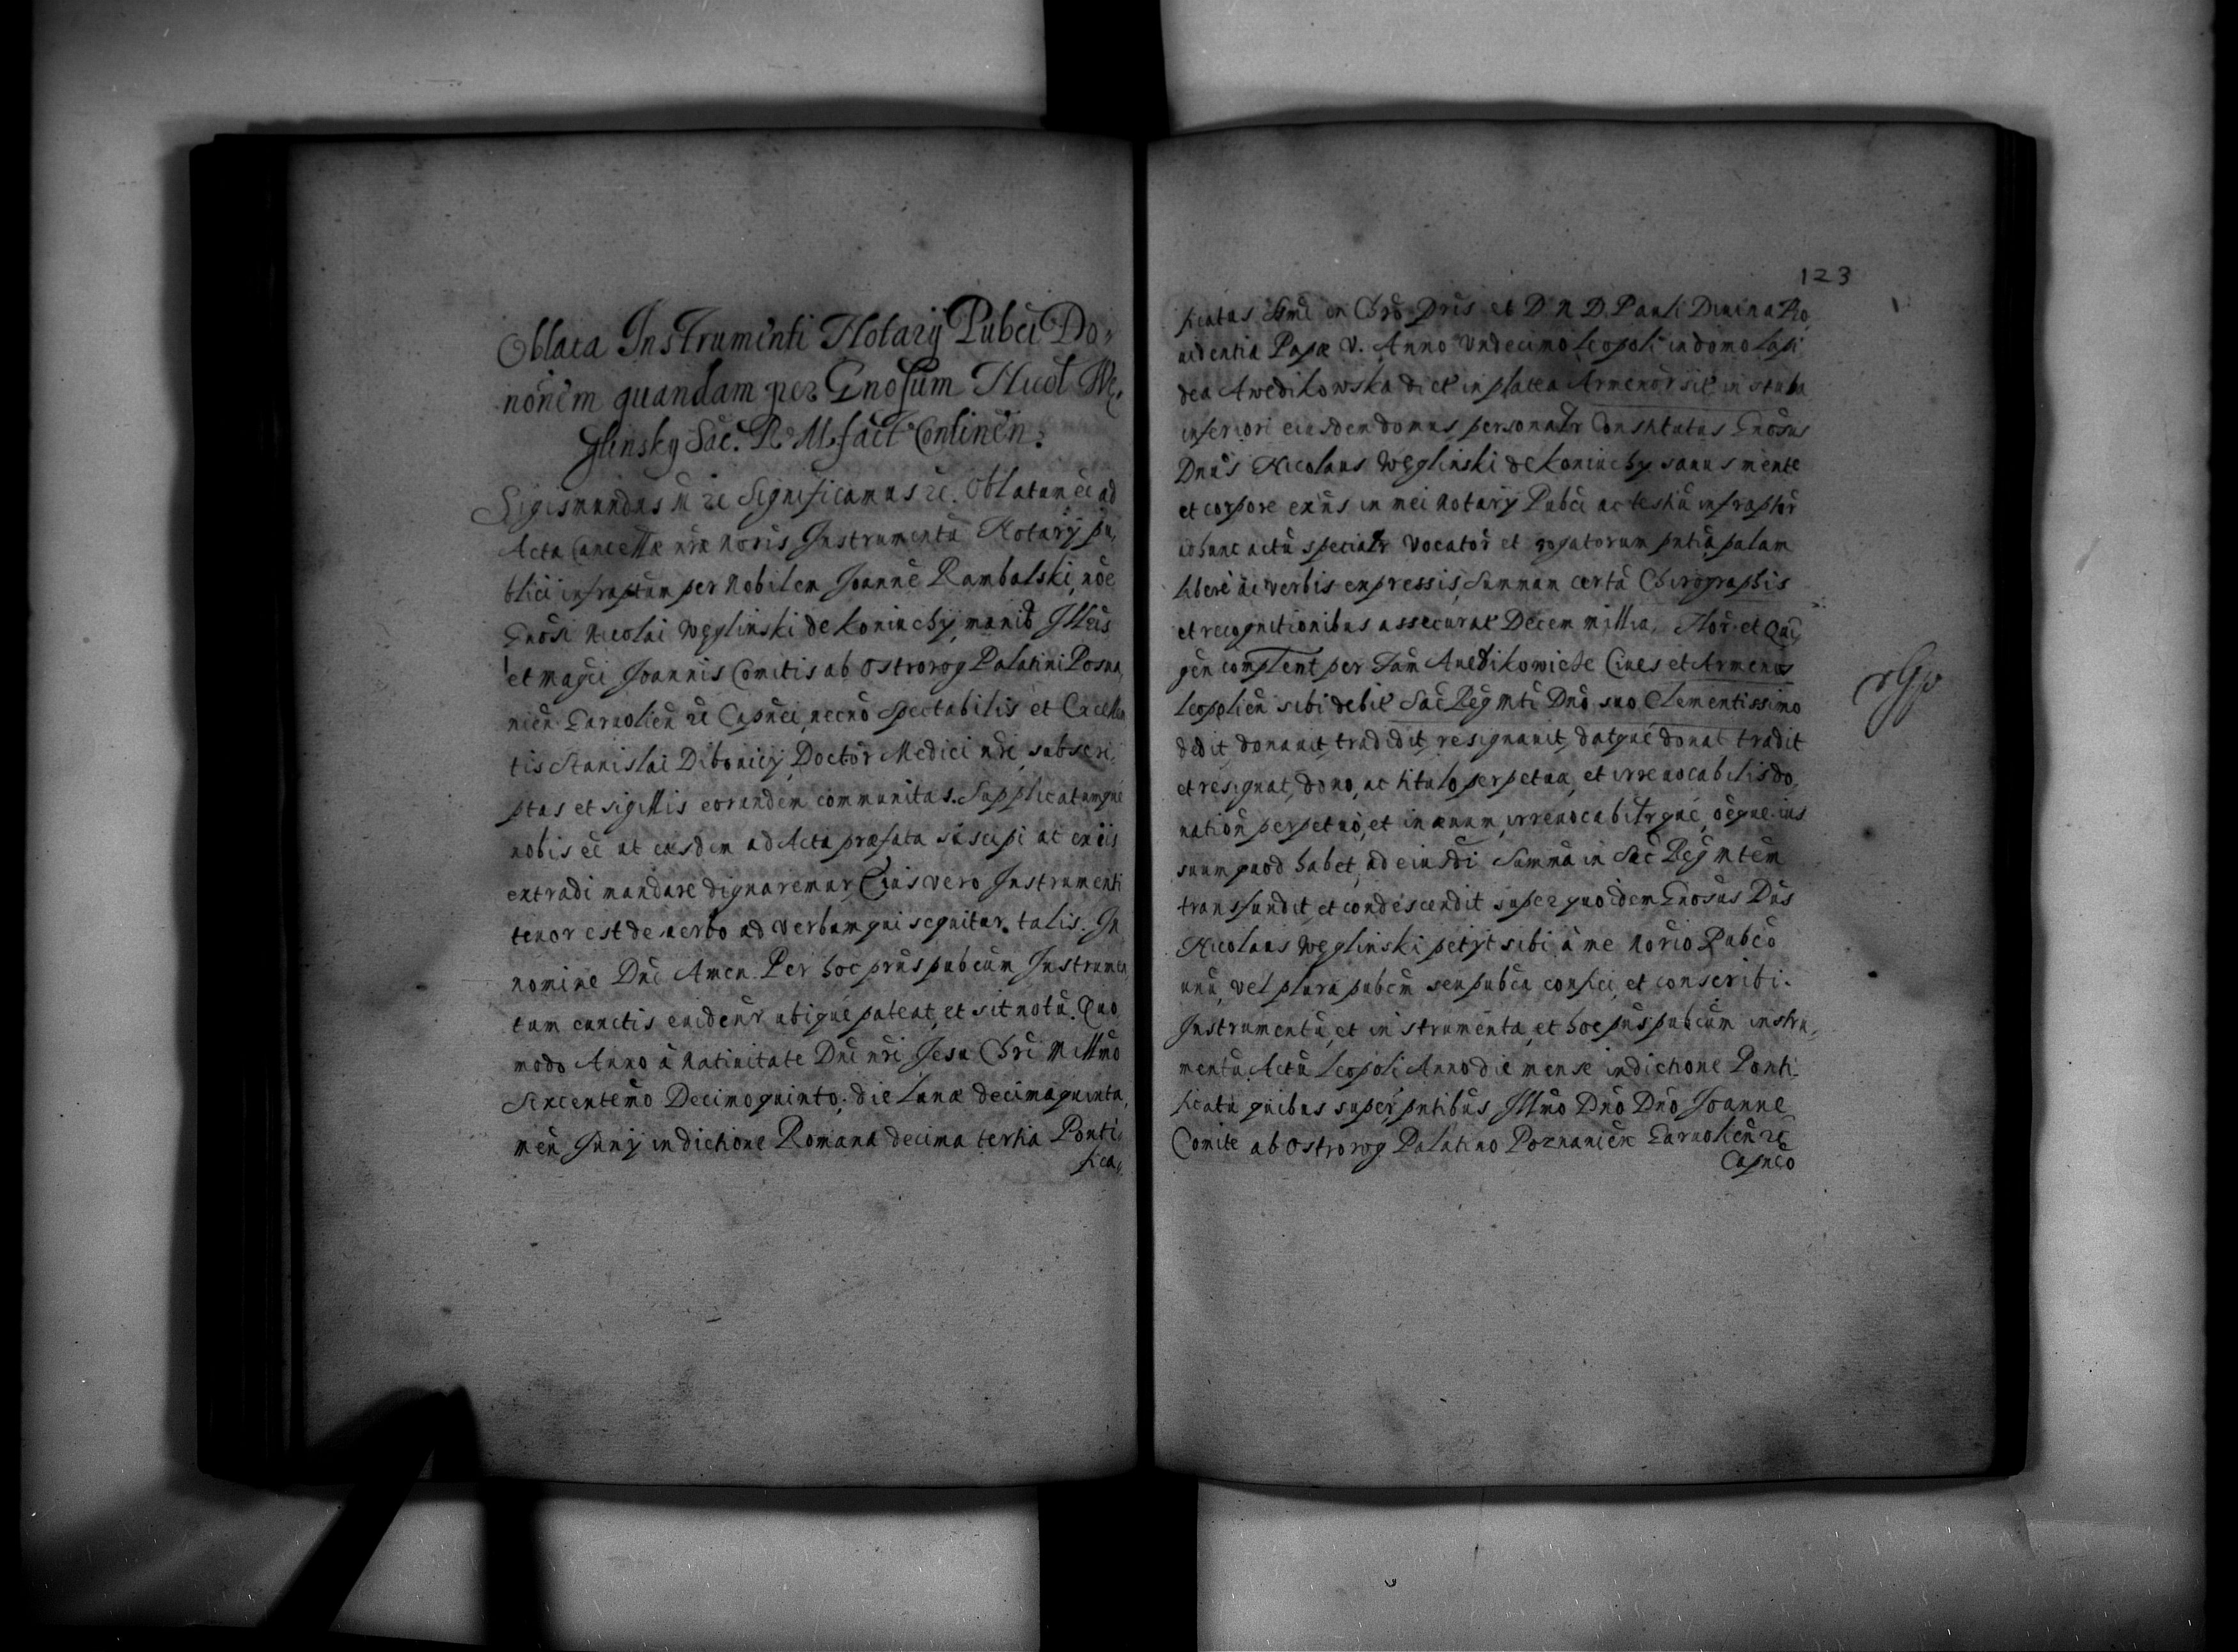 Oblata Instrumenti Notarij Pubci Do-
nõnem quandam per Gnosum Nicol We,
glinsky Sac. R. M. fact Continen.
Sigismundus III etc Significamus etc. Oblatum eẽ ad
Acta Cancellæ nræ noris Instrumentũ Notarij pu,
blici infraptum per Nobilem Joannẽ Rambalski, noẽ
Gnosi Nicolai Węglinski de Koniuchy, manib Illris
et magci Joannis Comitis ab Ostrorog Palatini Posna,
nien Garuolien etc Capnei, necno Spectabilis et Excellen
tis Stanislai Dibovicij, Doctor Medici nri, subscri,
ptas et sigillis eorundem communitas. Supplicatumque
nobis eẽ ut easdem ad Acta præfata suscipi ac ex iis
extradi mandare dignaremur, Cuius vero Instrumenti
tenor est de verbo ad verbum qui sequitur talis. In
nomine Dnĩ Amen. Per hoc prũs pubcum Instrumen,
tum cunctis evidenr ubique pateat, et sit notũ. Quo
modo Anno à nativitate Dnĩ nri Jesu Chri Millmo
Sexcentemo Decimoquinto, die Lunæ decimaquinta,
men Junij indictione Romana decima tertia Ponti,
fica,
123
ficatus Smi in Chro Pris et D N D. Pauli Divina Pro,
videntia Papæ V. Anno Undecimo Leopoli in domo lapi
dea Awedikowska dict in platea Armenor sit in stuba
inferiori eiusdem domus personalr Constitutus Gnosus
Dnus Nicolaus Węglinski de Koniuchy sanus mente
et corpore exñs in mei Notarij Pubci ac testiũ infraptor
ad hunc actũ specialr vocator et rogatorum pntia palam
libere ac verbis expressis, Summam certã Chirographis
et recognitionibus assecurat Decem millia, Flor. et Quī
gen complent per Jam Auedikowicze Cives et Armenos
Leopolien sibi debit Sac Reg Mti Dno suo Clementissimo
dedit donavit, tradidit, resignavit, datque donat tradit
et resignat, dono, ac titulo perpetuæ, et irrevocabilis do,
nation perpetuò, et in ævum, irrevocabilrque, oeque ius
suum quod habet, ad eiusdi Summã in Sac Reg Mtem
transfundit, et condescendit super quo idem Gnosus Dũs
Nicolaus Węglinski petijt sibi à me Norio Pubco
unũ, vel plura pubcm seu pubca confici, et conscribi.
Instrumentũ, et instrumenta, et hoc pũs pubcum instru,
mentũ Actũ Leopoli Anno die mense indictione Ponti,
ficatu quibus super, pntibus Illmo Dno Dno Joanne
Comite ab Ostrorog Palatino Poznanien Garuolien etc
Capneo